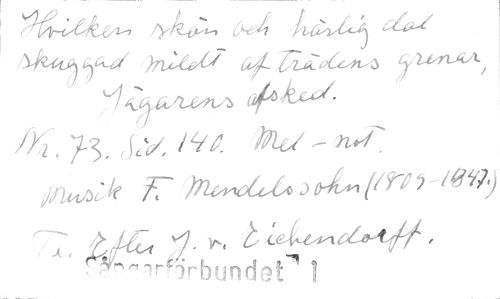 Hvilken skön och härlig dal
skuggad mildt af trädens grenar,
Jägarens afsked.
Nr. 73. Sid. 140. Mel-not.
Musik F. Mendelssohn (1809-1847.)
Tr. Efter J. v. Eichendorff.
Sångarförbundet 1